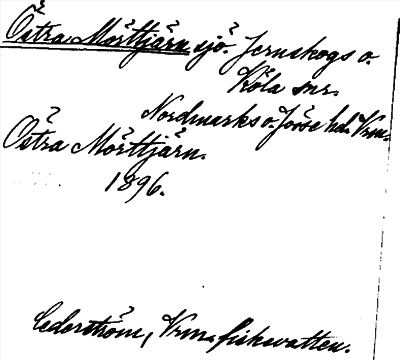 Östra Mörttjärn sjö. Jernskogs o.
Köla snr.
Nordmarks o. Jösse hd. Vrm.
Östra Mörttjärn.
1896.
Cederström, Vrm. fiskevatten.